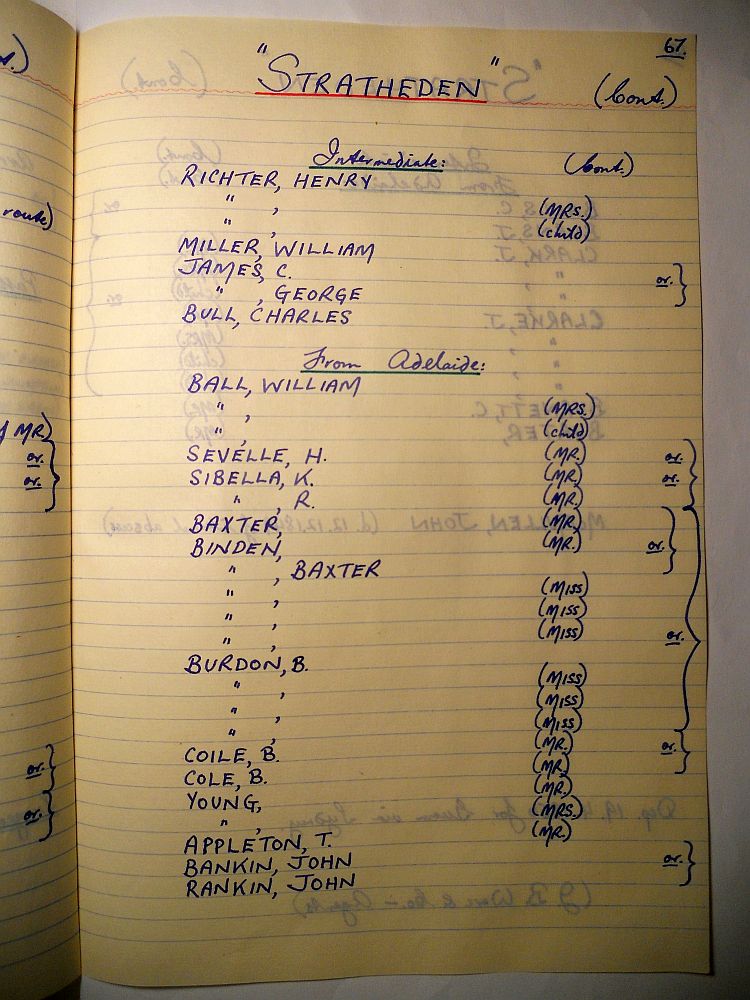 67.
"STRATHEDEN" (Cont.)
Intermediate: (Cont.)
RICHTER, HENRY
" , (MRS.)
" , (child)
MILLER, WILLIAM
JAMES, C. or.
" , GEORGE
BULL, CHARLES
From Adelaide:
BALL, WILLIAM
" , (MRS.)
" , (child)
SEVELLE, H. (MR.) or.
SIBELLA, K. (MR.) or.
" , R. (MR.)
BAXTER, (MR.)
BINDEN, (MR.) or.
" , BAXTER
" , (MISS)
" , (MISS)
" , (MISS) or.
BURDON, B.
" , (MISS)
" , (MISS)
" , (MISS)
COILE, B. (MR.) or.
COLE, B. (MR.)
YOUNG, (MR.)
" , (MRS.)
APPLETON, T. (MR.)
BANKIN, JOHN or.
RANKIN, JOHN
route)
MR)
or.
or.
or.
or.